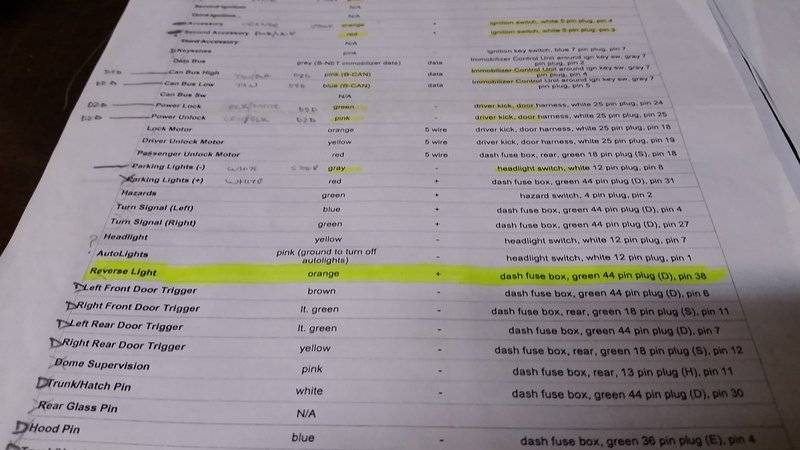 Second Ignition N/A
Third Ignition N/A
Accessory orange + ignition switch, white 5 pin plug, pin 4
Second Accessory red + ignition switch, white 5 pin plug, pin
Third Accessory N/A
Keysense pink ignition key switch, blue 7 pin plug, pin 7
Data Bus gray (B-NET immobilizer data) data Immobilizer Control Unit around ign key sw, gray 7 pin plug, pin 2
D2D Can Bus High D2D pink (B-CAN) data Immobilizer Control Unit around ign key sw, gray 7 pin plug, pin 4
D2D Can Bus Low D2D blue (B-CAN) data Immobilizer Control Unit around ign key sw, gray 7 pin plug, pin 5
Can Bus Sw N/A
D2D Power Lock D2D green - driver kick, door harness, white 25 pin plug, pin 24
D2D Power Unlock D2D pink - driver kick, door harness, white 25 pin plug, pin 25
Lock Motor orange 5 wire driver kick, door harness, white 25 pin plug, pin 18
Driver Unlock Motor yellow 5 wire driver kick, door harness, white 25 pin plug, pin 19
Passenger Unlock Motor red 5 wire dash fuse box, rear, green 18 pin plug (S), pin 18
Parking Lights (-) WHITE gray - headlight switch, white 12 pin plug, pin 8
Parking Lights (+) WHITE red + dash fuse box, green 44 pin plug (D), pin 31
Hazards green + hazard switch, 4 pin plug, pin 2
Turn Signal (Left) blue + dash fuse box, green 44 pin plug (D), pin 4
Turn Signal (Right) green + dash fuse box, green 44 pin plug (D), pin 27
? Headlight yellow - headlight switch, white 12 pin plug, pin 7
AutoLights pink (ground to turn off autolights) - headlight switch, white 12 pin plug, pin 1
Reverse Light orange + dash fuse box, green 44 pin plug (D), pin 38
Left Front Door Trigger brown - dash fuse box, green 44 pin plug (D), pin 6
Right Front Door Trigger lt. green - dash fuse box, rear, green 18 pin plug (S), pin 11
Left Rear Door Trigger lt. green - dash fuse box, green 44 pin plug (D), pin 7
Right Rear Door Trigger yellow - dash fuse box, rear, green 18 pin plug (S), pin 12
Dome Supervision pink - dash fuse box, rear, 13 pin plug (H), pin 11
Trunk/Hatch Pin white - dash fuse box, green 44 pin plug (D), pin 30
Rear Glass Pin N/A
Hood Pin blue - dash fuse box, green 36 pin plug (E), pin 4